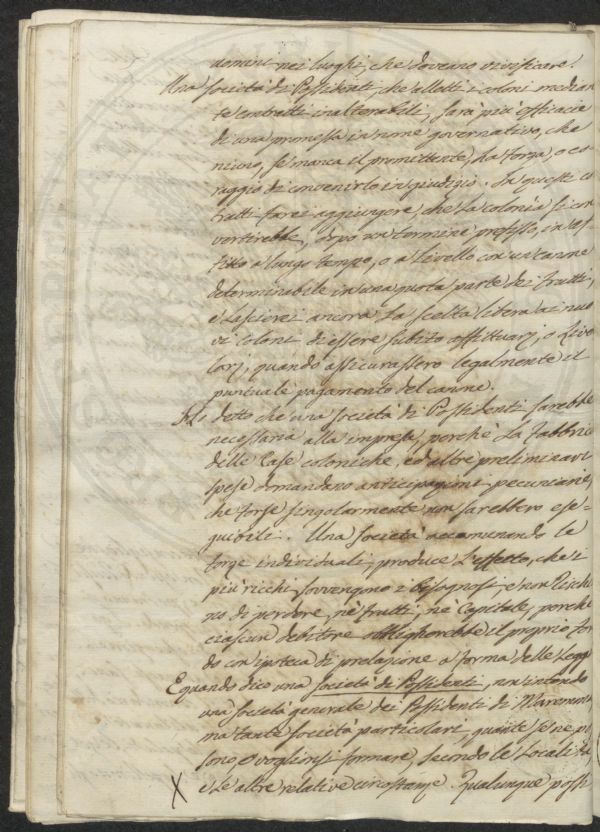 uomini nei luoghi, che dovranno vivificare.
Una Società di Possidenti, che alletti i coloni median
te contratti inalterabili, sarà più efficacie
di una promessa in nome governativo, che
niuno, se manca il promittente, ha forza, o co
raggio di convenirlo in giudizio. In questi co
tratti farei aggiungere, che la colonia si con
vertirebbe, dopo un termine prefisso, in af
fitto a lungo tempo, o a livello con un canone
determinabile in una quota parte dei frutti,
e lascierei ancora la scelta libera ai nuo
vi coloni di essere subito affittuarj, o Live
larj, quando assicurassero legalmente il
puntuale pagamento del canone.
Ho detto che una Società di Possidenti sarebbe
necessaria alla impresa, perchè la Fabbric
delle Case coloniche, ed altre preliminari
spese domandano anticipazione pecuniarie,
che forse singolarmente non sarebbero ese-
guibili. Una Società accomunando le
forze individuali, produce l'effetto, che i
più ricchi sovvengono i bisognosi, e non risch
no di perdere, nè frutti, nè Capitale, perchè
ciascun debitore obbligherebbe il proprio Fon
do con ipoteca di prelazione a forma delle Leggi
E quando dico una Società di Possidenti, non intendo
una società generale dei Possidenti di Maremma
ma tante società particolari, quante se ne po
sono, o vogliansi formare, secondo le Località
X e le altre relative circostanze. Qualunque possi